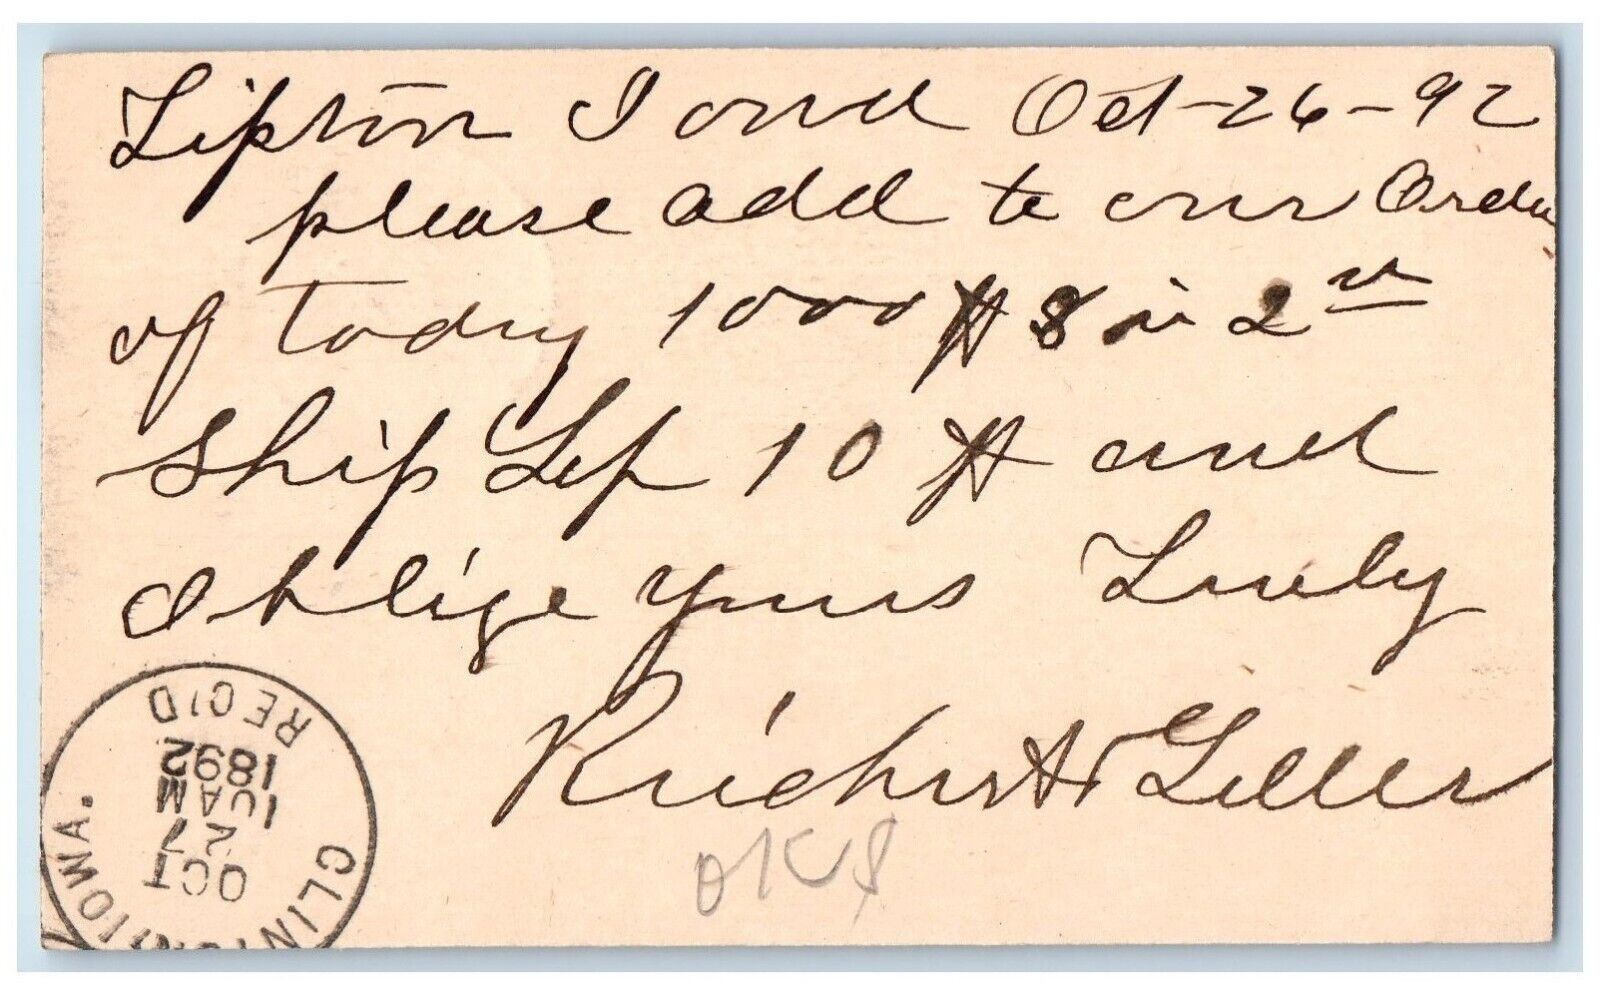 Lipton Iowa Oct-26-92
please add to our Order
of today 1000 ft 8 in 2
Ship Lip 10 ft and
oblige yours Truly
Richert Geller
OK
CLINTON, IOWA.
OCT
27
1 AM
1892
REC'D